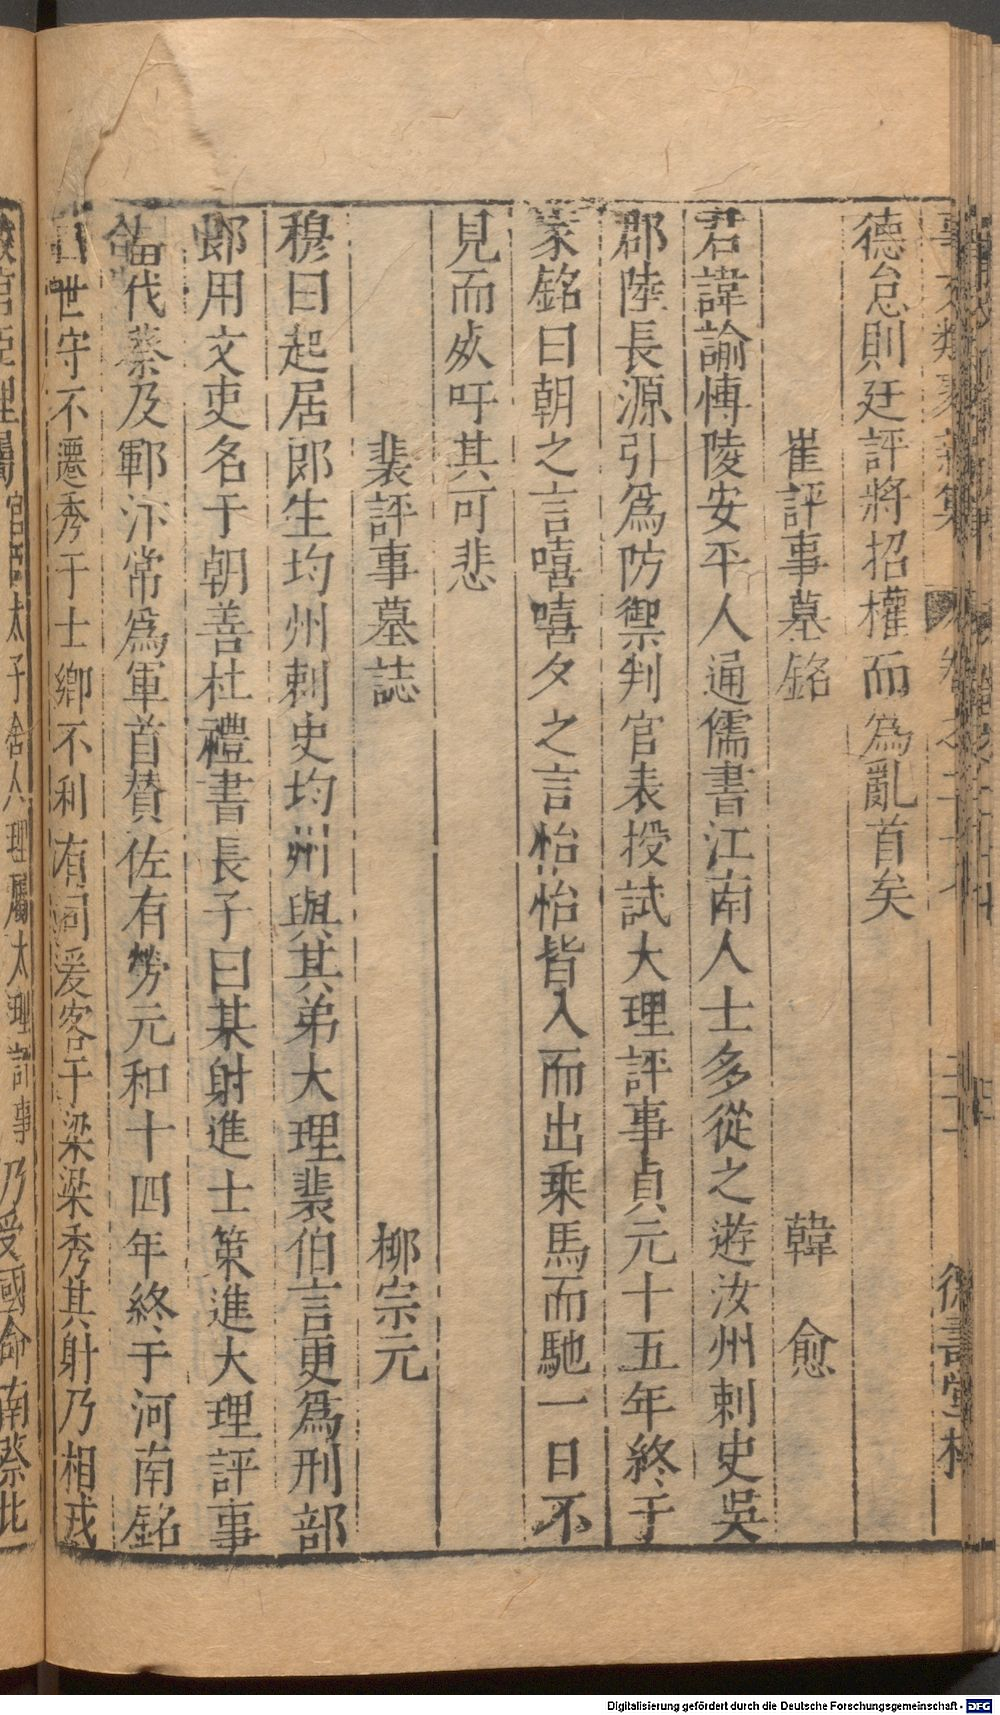 德怠則廷評將招權而為亂首矣
崔評事墓銘 韓 愈
君諱諭愽陵安平人通儒書江南人士多從之遊汝州刺史吳
郡陸長源引爲防禦判官表授試大理評事貞元十五年終于
家銘曰朝之言嘻嘻夕之言怡怡皆入而出乘馬而馳一日不
見而死吁其可悲
裴評事墓誌 栁宗元
穆曰起居郎生均州刺史均州與其弟大理裴伯言更爲刑部
郎用文吏名于朝善杜禮書長子曰某射進士策進大理評事
代蔡及鄆汴常爲軍首賛佐有勞元和十四年終于河南銘
世守不遷秀于士鄉不利有司爰客于梁梁秀其射乃相戎
屬 太子舍人理屬太理評事乃受國命南蔡北
Digitalisierung gefördert durch die Deutsche Forschungsgemeinschaft - DFG